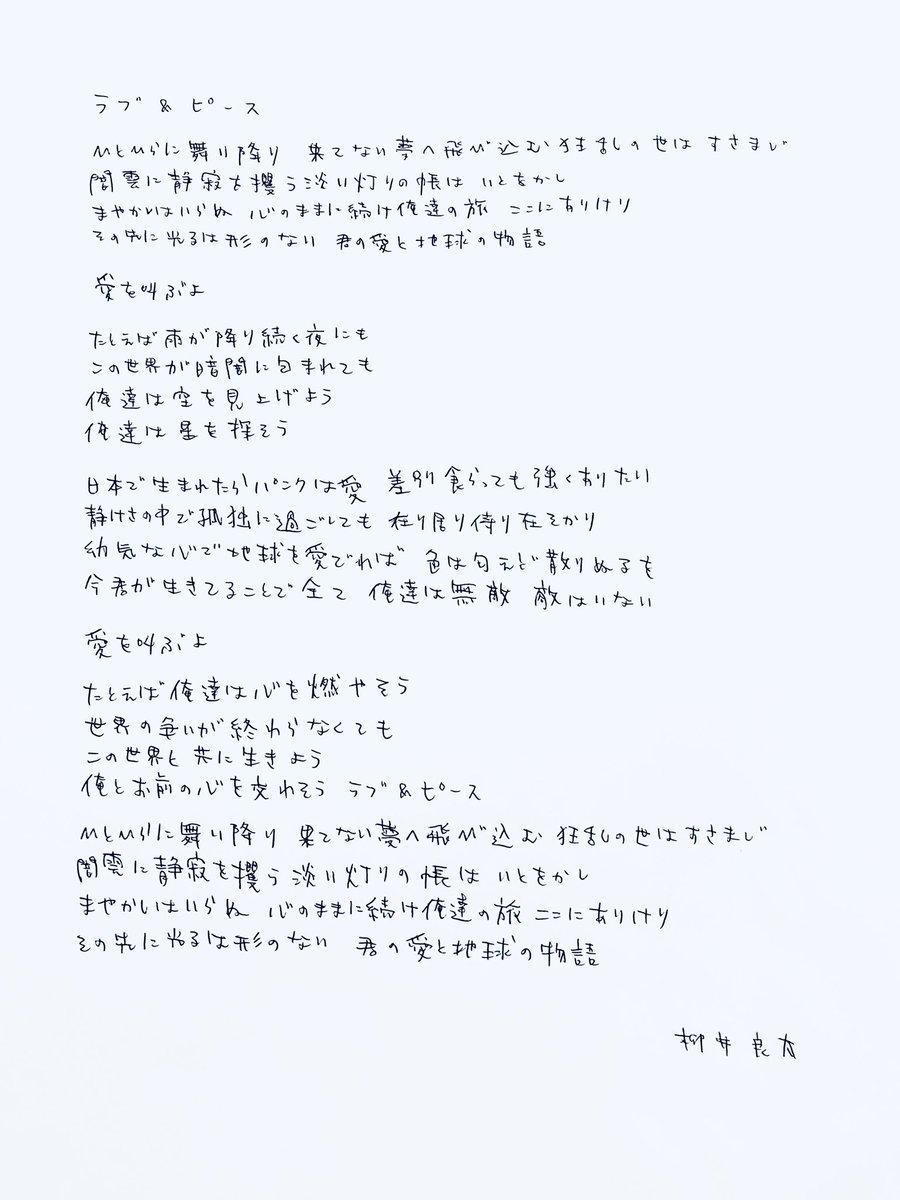 ラブ & ピース
ひとひらに舞い降り 果てない夢へ飛び込む 狂乱の世は すさまじ
闇雲に静寂を攫う淡い灯りの帳は いとをかし
まやかしはいらぬ 心のままに続け俺達の旅 ここにありけり
その先に光るは形のない 君の愛と地球の物語
愛を叫ぶよ
たとえば雨が降り続く夜にも
この世界が暗闇に包まれても
俺達は空を見上げよう
俺達は星を探そう
日本で生まれたらパンクは愛 差別食らっても強くありたい
静けさの中で孤独に過ごしても 在り居り侍り在そかり
幼気な心で地球を愛でれば 色は匂えど散りぬるを
今君が生きてることで全て 俺達は無敵 敵はいない
愛を叫ぶよ
たとえば俺達は心を燃やそう
世界の争いが終わらなくても
この世界と共に生きよう
俺とお前の心を交わそう ラブ&ピース
ひとひらに舞い降り 果てない夢へ飛び込む 狂乱の世はすさまじ
闇雲に静寂を攫う淡い灯りの帳は いとをかし
まやかしはいらぬ 心のままに続け俺達の旅 ここにありけり
その先に光るは形のない 君の愛と地球の物語
柳井良太